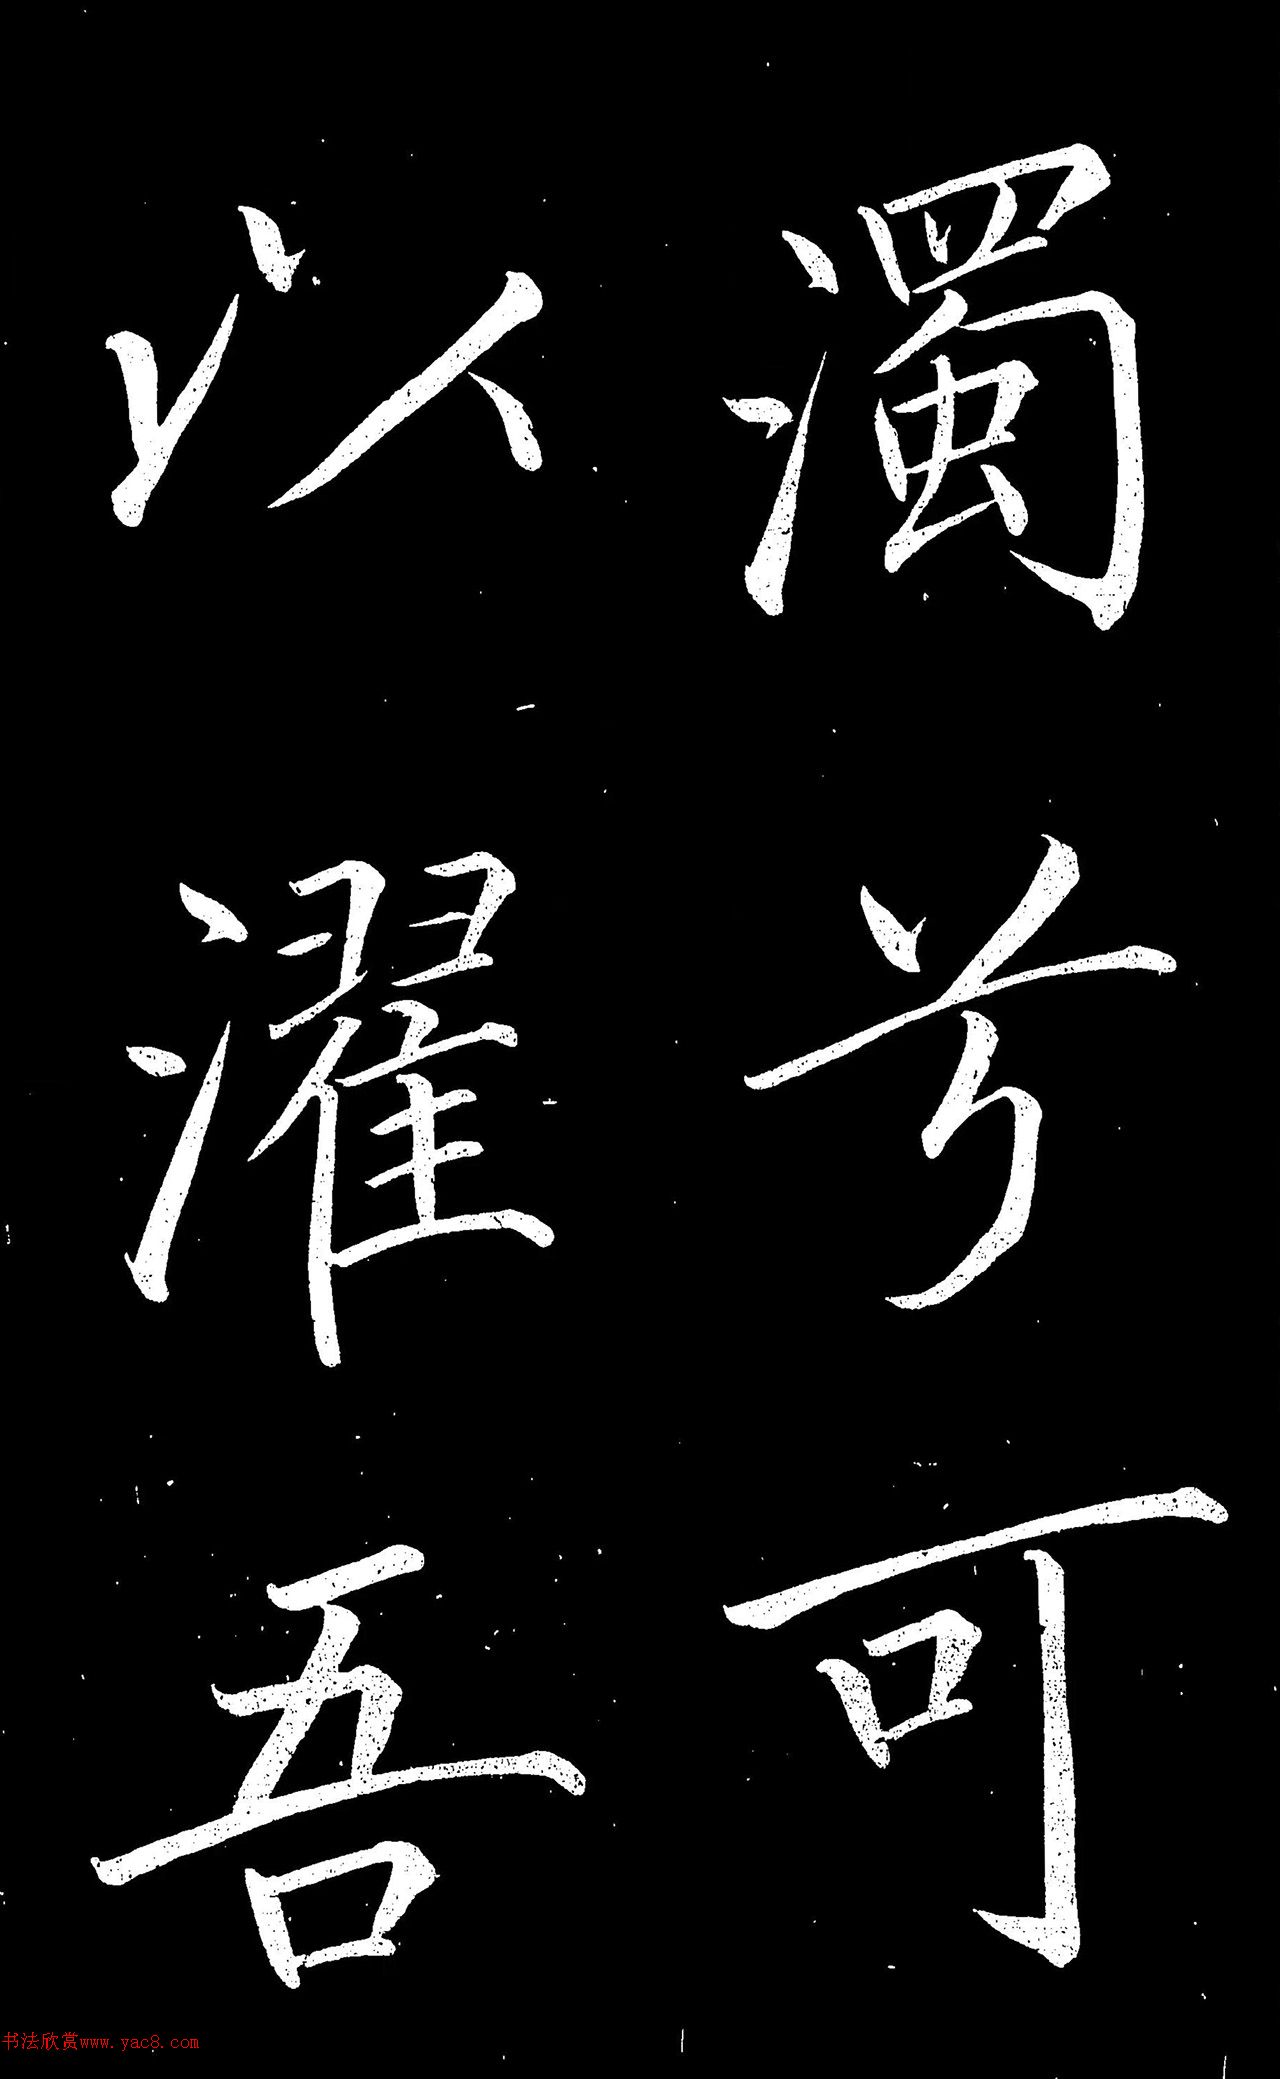 濁兮可
以濯吾
书法欣赏www.yac8.com